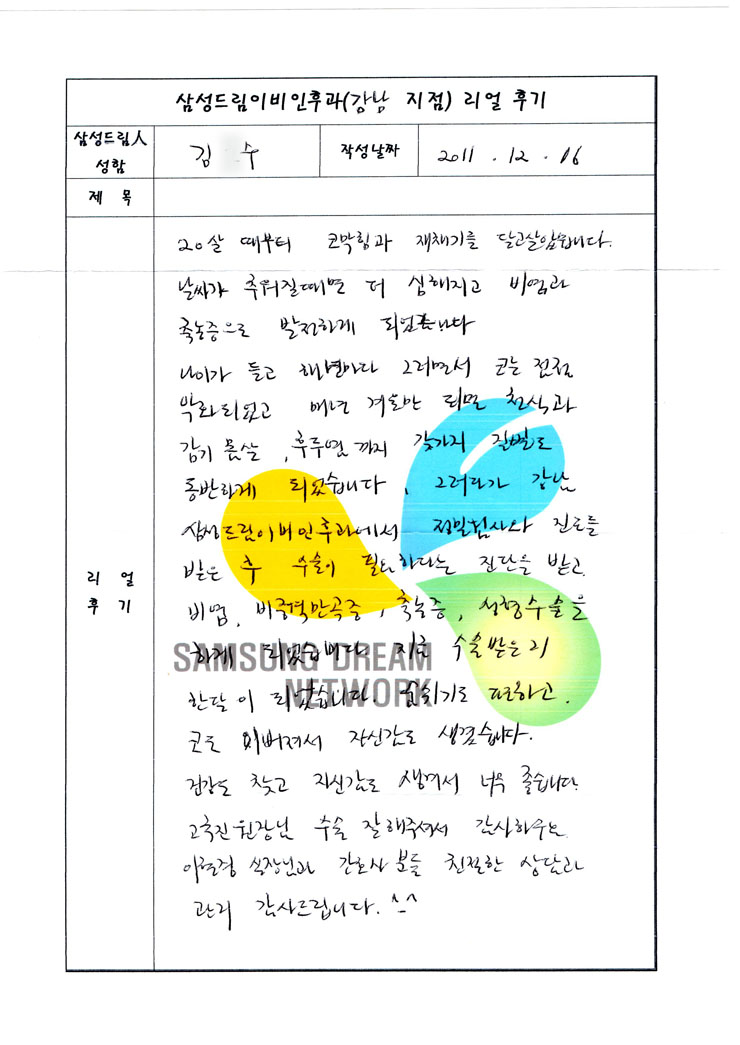 삼성드림이비인후과(강남 지점) 리얼 후기
삼성드림人 성함
김 수
작성날짜
2011 . 12 . 16
제 목
리 얼 후 기
20살 때부터 코막힘과 재채기를 달고살았습니다.
날씨가 추워질때면 더 심해지고 비염과
축농증으로 발전하게 되었습니다
나이가 들고 해년마다 그러면서 코는 점점
악화되었고 매년 겨울만 되면 천식과
감기 몸살 , 후두염 까지 갖가지 질병도
동반하게 되었습니다 , 그러다가 강남
삼성드림이비인후과에서 정밀검사와 진료를
받은 후 수술이 필요하다는 진단을 받고
비염, 비중격만곡증 , 축농증 , 성형수술을
하게 되었습니다. 지금 수술받은지
한달이 되었습니다. 숨쉬기도 편하고.
코도 이뻐져서 자신감도 생겼습니다.
건강도 찾고 자신감도 생겨서 너무 좋습니다.
원장님 수술 잘해주셔서 감사하구요
실장님과 간호사 분들 친절한 상담과
관리 감사드립니다. ^_^
SAMSUNG DREAM
NETWORK